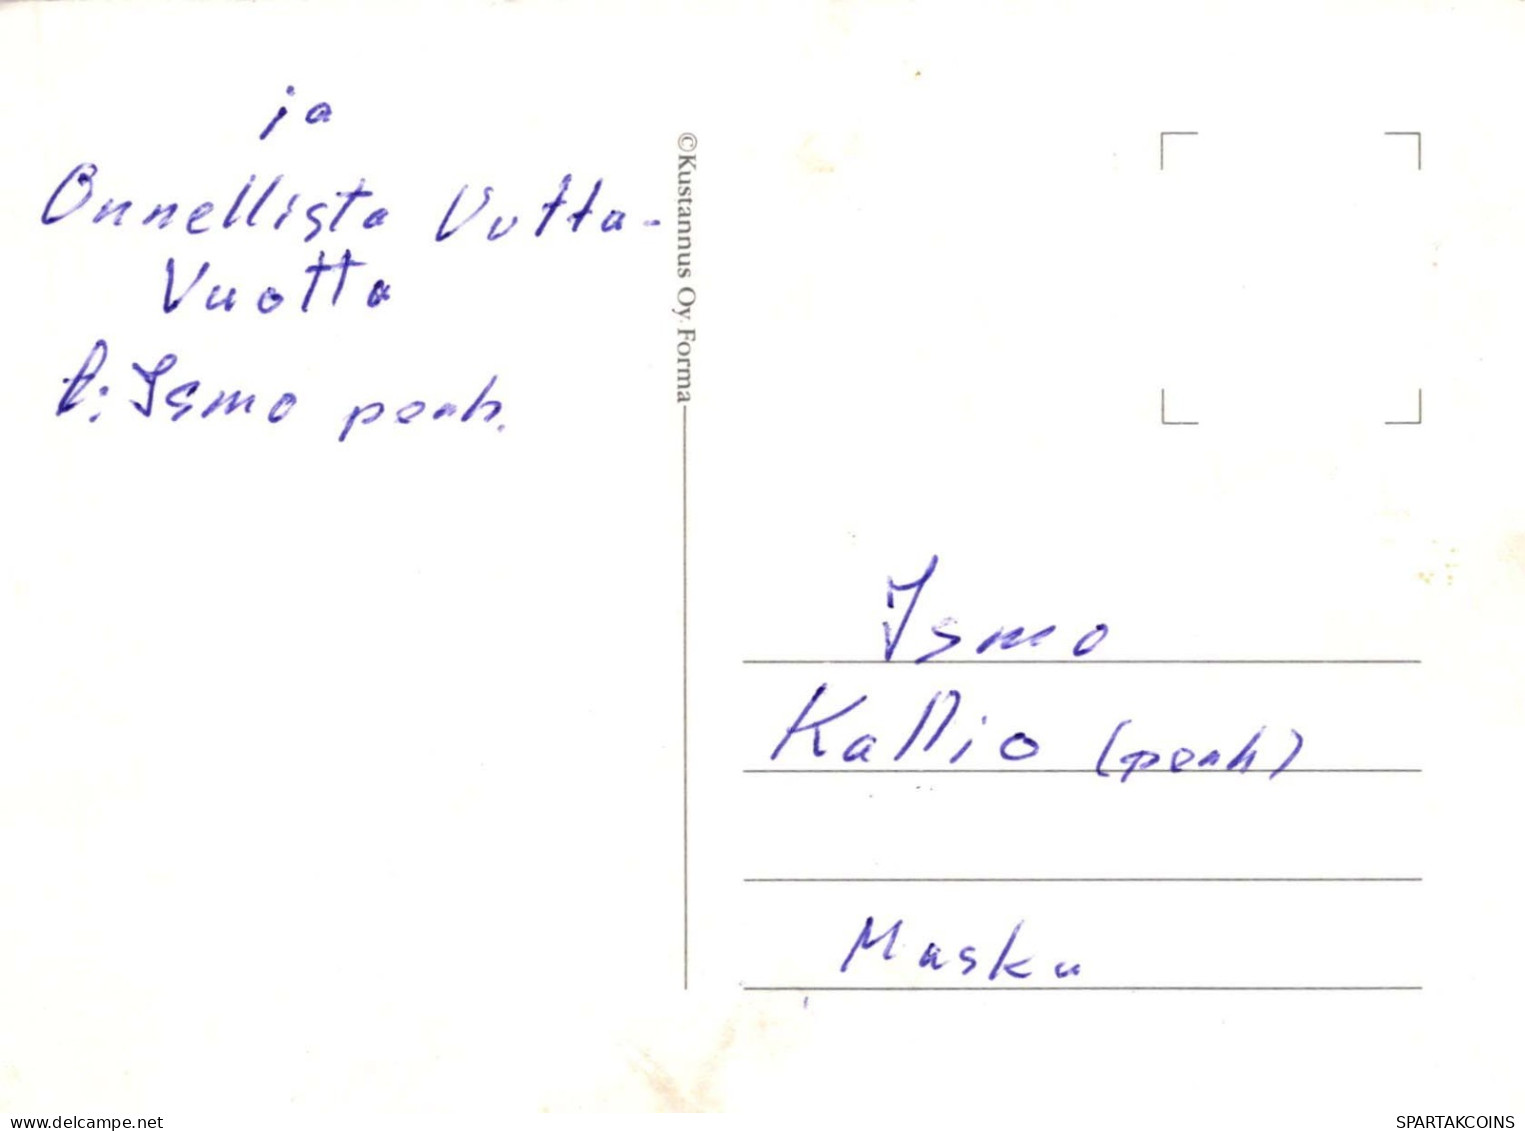 ja
Onnellista Uutta-
Vuotta
t: Ismo perh.
©Kustannus Oy Forma
Ismo
Kallio (perh)
Masku
delcampe.net
SPARTAKCOINS